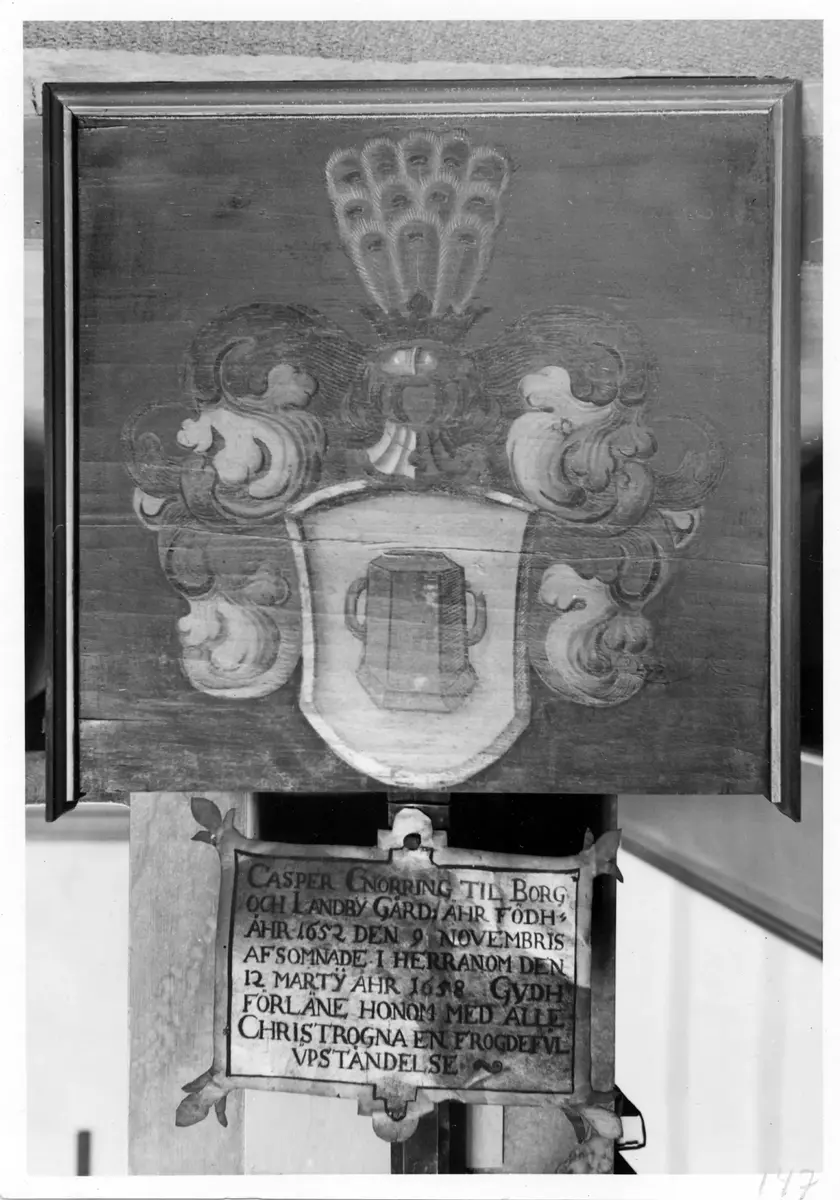 CASPER GNORRING TIL BORG
OCH LANDBŸ GÅRD: ÄHR FÖDH
ÅHR 1652 DEN 9 NOVEMBRIS
AFSOMNADE I HERRANOM DEN
12 MARTŸ ÅHR 1658 GVDH
FÖRLÄNE HONOM MED ALLE
CHRISTROGNA EN FROGDEFVL
VPSTÅNDELSE
147